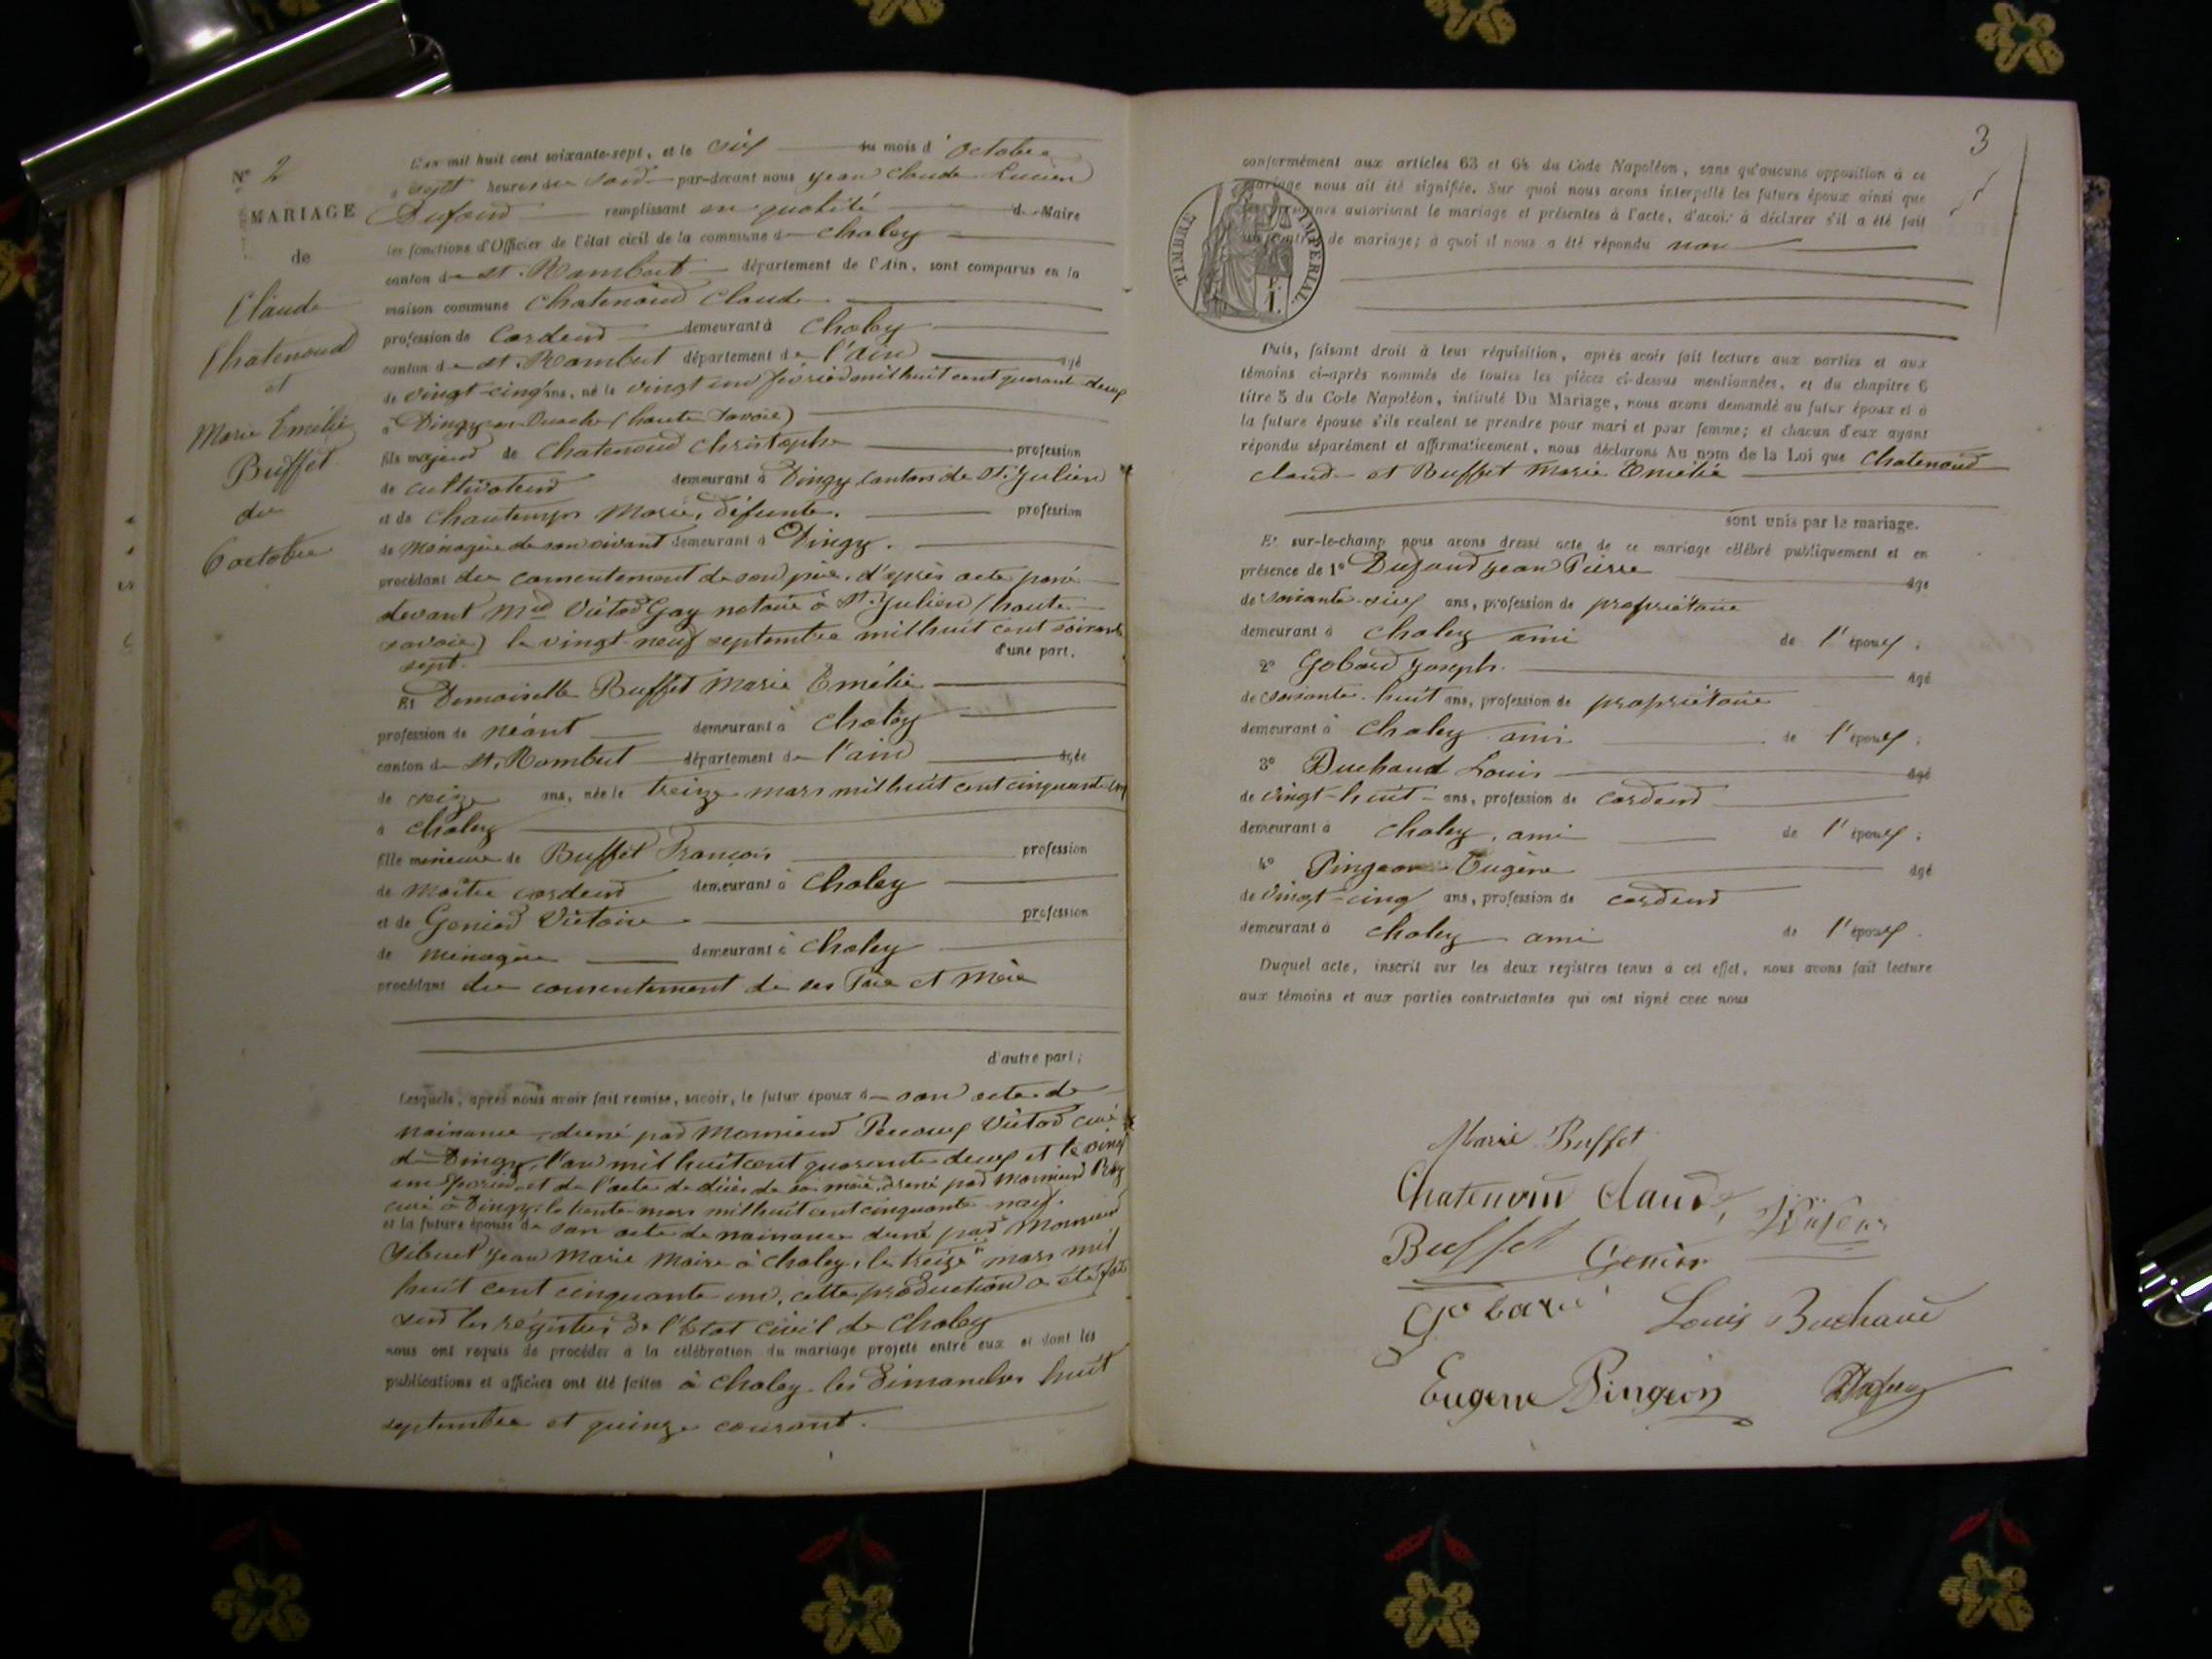 N° 2
MARIAGE
de
Claude
Chatenoud
et
Marie Emélie
Buffet
du
6 octobre
L'an mil huit cent soixante-sept, et le six du mois d'octobre
à sept heures du soir par-devant nous Jean Claude Lucien
Dufour remplissant en qualité de Maire
les fonctions d'Officier de l'état civil de la commune de Chaley
canton de St. Rambert département de l'Ain, sont comparus en la
maison commune Chatenoud Claude
profession de Cardeur demeurant à Chaley
canton de St. Rambert département de l'Ain âgé
de vingt-cinq ans, né le vingt un février mil huit cent quarante deux
à Dingy en Vuache (haute Savoie)
fils majeur de Chatenoud Christophe profession
de cultivateur demeurant à Dingy canton de St. Julien
et de Chautemps Marie, défunte. profession
de Ménagère de son vivant demeurant à Dingy.
procédant du consentement de son père, d'après acte passé
devant Me Victor Gay notaire à St. Julien (haute
savoie) le vingt-neuf septembre mil huit cent soixante
sept. d'une part.
Et Demoiselle Buffet Marie Emélie
profession de néant demeurant à Chaley
canton de St. Rambert département de l'ain âgée
de seize ans, née le treize mars mil huit cent cinquante un
à Chaley
fille mineure de Buffet François profession
de Maître cardeur demeurant à Chaley
et de Genier Victoire profession
de ménagère demeurant à Chaley
procédant du consentement de ses Père et Mère
d'autre part;
Lesquels, après nous avoir fait remise, savoir, le futur époux de son acte de
naissance, dressé par Monsieur Victor curé
de Dingy, l'an mil huit cent quarante deux et le vingt
un février et de l'acte de décès de sa mère, dressé par Monsieur Rey
curé à Dingy, le trente mars mil huit cent cinquante neuf.
et la future épouse de son acte de naissance dressé par Monsieur
Jean Marie Maire à Chaley, le treize mars mil
huit cent cinquante un, cette production a été faite
sur les régistres de l'Etat civil de Chaley
nous ont requis de procéder à la célébration du mariage projeté entre eux et dont les
publications et affiches ont été faites à Chaley les Dimanches huit
septembre et quinze courant.
3
conformément aux articles 63 et 64 du Code Napoléon, sans qu'aucune opposition à ce
mariage nous ait été signifiée. Sur quoi nous avons interpellé les futurs époux ainsi que
les personnes autorisant le mariage et présentes à l'acte, d'avoir à déclarer s'il a été fait
un contrat de mariage; à quoi il nous a été répondu non
TIMBRE IMPÉRIAL
F.
1.
Puis, faisant droit à leur réquisition, après avoir fait lecture aux parties et aux
témoins ci-après nommés de toutes les pièces ci-dessus mentionnées, et du chapitre 6
titre 5 du Code Napoléon, intitulé Du Mariage, nous avons demandé au futur époux et à
la future épouse s'ils veulent se prendre pour mari et pour femme; et chacun d'eux ayant
répondu séparément et affirmativement, nous déclarons Au nom de la Loi que Chatenoud
Claude et Buffet Marie Emélie
sont unis par le mariage.
Et sur-le-champ nous avons dressé acte de ce mariage célébré publiquement et en
présence de 1° Dufour Jean Pierre âgé
de soixante-six ans, profession de propriétaire
demeurant à Chaley ami de l'époux;
2° Gobard Joseph. âgé
de soixante-huit ans, profession de propriétaire
demeurant à Chaley ami de l'époux;
3° Buchaud Louis âgé
de vingt-huit ans, profession de cardeur
demeurant à Chaley, ami de l'époux;
4° Pingeon Eugène âgé
de vingt-cinq ans, profession de cardeur
demeurant à Chaley ami de l'époux.
Duquel acte, inscrit sur les deux registres tenus à cet effet, nous avons fait lecture
aux témoins et aux parties contractantes qui ont signé avec nous
Marie Buffet
Chatenoud Claude Dufour
Buffet Genier
Gobard Louis Buchaud
Eugène Pingeon Dufour